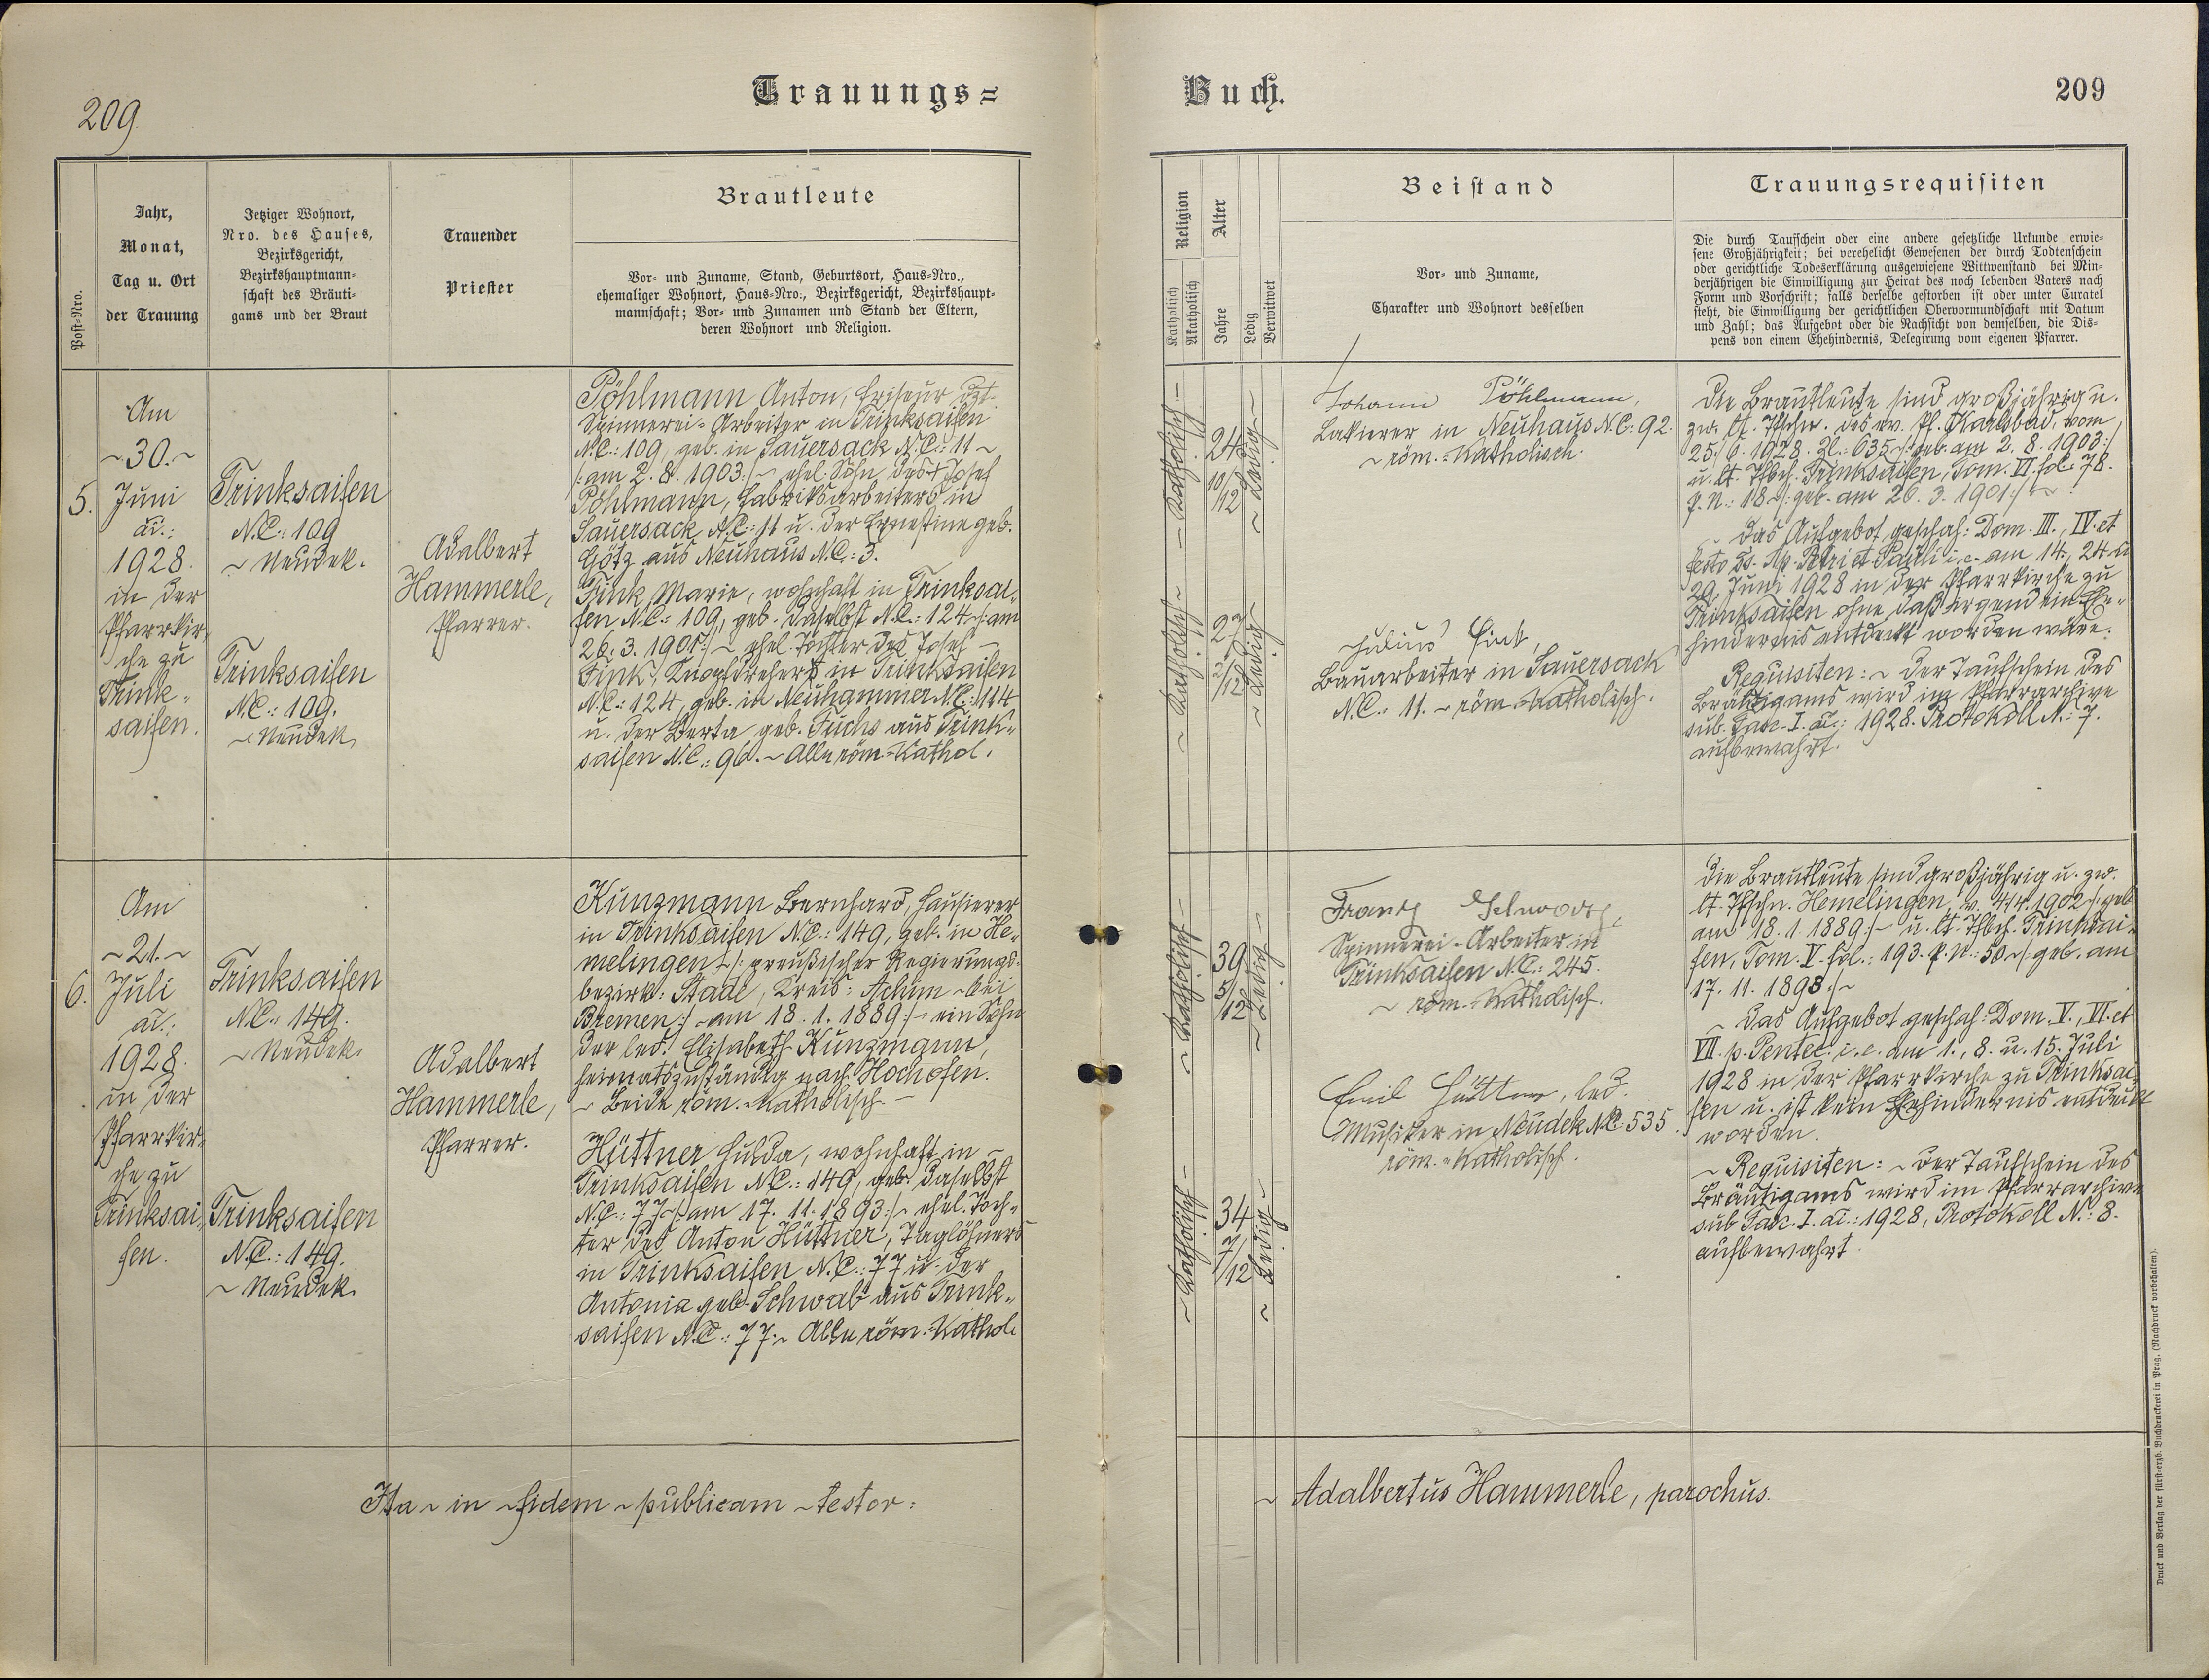 209.
Trauungs=
Buch.
209
Post=Nro.
Jahr,
Monat,
Tag u. Ort
der Trauung
Jetziger Wohnort,
Nro. des Hauses,
Bezirksgericht,
Bezirkshauptmann=
schaft des Bräuti=
gams und der Braut
Trauender
Priester
Brautleute
Vor= und Zuname, Stand, Geburtsort, Haus=Nro.,
ehemaliger Wohnort, Haus=Nro., Bezirksgericht, Bezirkshaupt=
mannschaft; Vor= und Zunamen und Stand der Eltern,
deren Wohnort und Religion.
Religion
Katholisch
Akatholisch
Alter
Jahre
Ledig
Verwitwet
Beistand
Vor= und Zuname,
Charakter und Wohnort desselben
Trauungsrequisiten
Die durch Taufschein oder eine andere gesetzliche Urkunde erwie=
sene Großjährigkeit; bei verehelicht Gewesenen der durch Todtenschein
oder gerichtliche Todeserklärung ausgewiesene Wittwenstand bei Min=
derjährigen die Einwilligung zur Heirat des noch lebenden Vaters nach
Form und Vorschrift; falls derselbe gestorben ist oder unter Curatel
steht, die Einwilligung der gerichtlichen Obervormundschaft mit Datum
und Zahl; das Aufgebot oder die Nachsicht von demselben, die Dis=
pens von einem Ehehindernis, Delegirung vom eigenen Pfarrer.
5.
Am
~30.~
Juni
1928.
in der
Pfarrkir=
che zu
Trink=
saifen.
Trinksaifen
N.C.: 109
~ Neudek.
Trinksaifen
N.C.: 109.
~ Neudek
Adalbert
Hammerle,
Pfarrer.
Pöhlmann Anton, Friseur dzt.
Spinnerei=Arbeiter in Trinksaifen
N.C.: 109, geb. in Sauersack N.C.: 11 ~
/: am 2.8.1903 :/ ~ ehel. Sohn des † Josef
Pöhlmann, Fabriksarbeiters in
Sauersack, N.C.: 11 u. der Ernestine geb.
Götz aus Neuhaus N.C.: 3.
Fink Marie, wohnhaft in Trinksai=
fen N.C.: 109, geb. daselbst N.C.: 124 ~ /: am
26.3.1901 :/ ~ ehel. Tochter des Josef
Fink, Knopfdrehers in Trinksaifen
N.C.: 124, geb. in Neuhammer N.C.: 144
u. der Berta geb. Fuchs aus Trink=
saifen N.C.: 96. ~ Alle röm.=kathol.
~ Katholisch ~
24
10/12
~ Ledig ~
~ Katholisch ~
27
3/12
~ Ledig ~
Johann Pöhlmann,
Lakierer in Neuhaus N.C.: 92.
~ röm.=Katholisch.
Julius Fink,
Bauarbeiter in Sauersack
N.C.: 11. ~ röm.=katholisch.
Die Brautleute sind großjährig u.
zw. lt. Tfschn. des Pf. Karlsbad, vom
25./6.1928. Zl.: 635 ~ /: geb. am 2.8.1903 :/
u. lt. Tfbch. Trinksaifen, Tom. VI. fol. 78.
p.N.: 18 ~ /: geb. am 26.3.1901 :/ ~
~ Das Aufgebot geschah: Dom. III., IV. et
festo Ss. Ap. Petri et Pauli i.e. am 14., 24. u
29. Juni 1928 in der Pfarrkirche zu
Trinksaifen ohne daß irgend ein Ehe=
hindernis entdeckt worden wäre.
Requisiten: ~ Der Taufschein des
Bräutigams wird im Pfarrarchive
sub. Fasc. I. 1928. Protokoll N.: 7.
aufbewahrt.
6.
Am
~21.~
Juli
1928.
in der
Pfarrkir=
che zu
Trinksai=
fen.
Trinksaifen
N.C.: 149.
~ Neudek.
Trinksaifen
N.C.: 149.
~ Neudek.
Adalbert
Hammerle,
Pfarrer.
Kunzmann Bernhard, Hausierer
in Trinksaifen N.C.: 149, geb. in He=
melingen ~ /: preußischer Regierungs=
bezirk: Stade, Kreis: Achim ~ bei
Bremen :/ ~ am 18.1.1889 :/ ~ ein Sohn
der led. Elisabeth Kunzmann,
heimatszuständig nach Hochofen.
~ Beide röm.=katholisch. ~
Hüttner Hulda, wohnhaft in
Trinksaifen N.C.: 149, geb. daselbst
N.C.: 77 ~ /: am 17.11.1893 :/ ~ ehel. Toch=
ter des Anton Hüttner, Taglöhners
in Trinksaifen N.C.: 77 u. der
Antonia geb. Schwab aus Trink=
saifen N.C.: 77. ~ Alle röm.=kathol.
~ Katholisch ~
39
5/12
~ Ledig ~
~ Katholisch ~
34
7/12
~ Ledig ~
Franz
Spinnerei=Arbeiter in
Trinksaifen N.C.: 245.
~ röm.=katholisch.
Emil Hüttner, led.
Musiker in Neudek N.C.: 535.
röm.=katholisch.
Die Brautleute sind großjährig u. zw.
lt. Tfschn. Hemelingen, v. 1902 ~ /: geb.
am 18.1.1889 :/ ~ u. lt. Tfbch. Trinksai=
fen, Tom. V. fol.: 193. p.N.: 50 ~ /: geb. am
17.11.1893 :/ ~
~ Das Aufgebot geschah: Dom. V., VI. et
VII. p. Pentec. i.e. am 1., 8. u. 15. Juli
1928 in der Pfarrkirche zu Trinksai=
fen u. ist kein Ehehindernis entdeckt
worden.
~ Requisiten: ~ Der Taufschein des
Bräutigams wird im Pfarrarchive
sub Fasc. I. 1928, Protokoll N.: 8.
aufbewahrt.
Ita ~ in ~ fidem ~ publicam ~ testor:
~ Adalbertus Hammerle, parochus.
Druck und Verlag der fürst=erzb. Buchdruckerei in Prag. (Nachdruck vorbehalten).